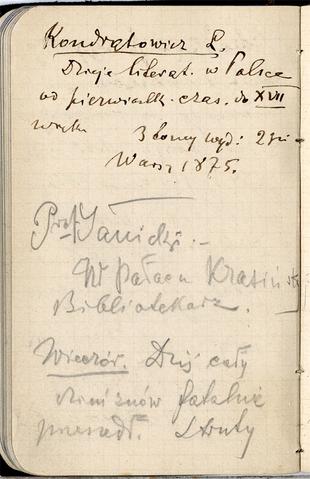 Kondratowicz L.
Dzieje literat. w Polsce
od pierwiastk. czas. do XVII
wieku
3 tomy wyd: 2gie
Warsz 1875.
Prof. Janicki. –
W pałacu Krasińsk
Bibliotekarz.
Wieczór. Dziś cały
dzień znów fatalnie
przeszedł.